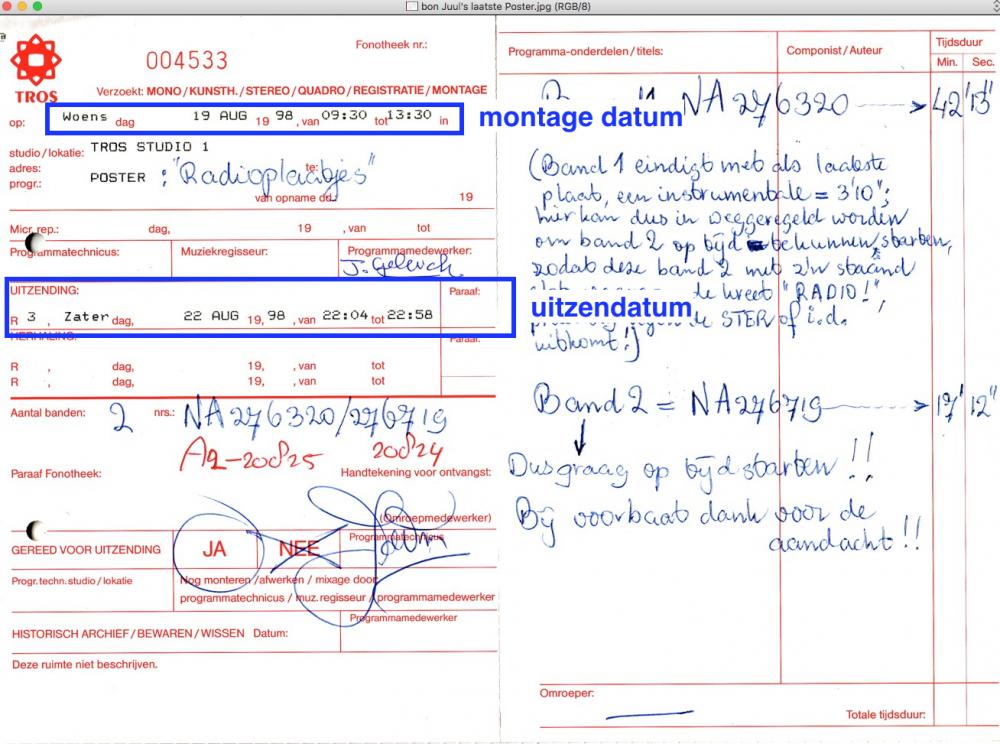 bon Juul's laatste Poster.jpg (RGB/8)
TROS
004533
Fonotheek nr.:
Verzoekt: MONO / KUNSTH. / STEREO / QUADRO / REGISTRATIE / MONTAGE
op: Woens dag 19 AUG 19 98, van 09:30 tot 13:30 in
montage datum
studio / lokatie: TROS STUDIO 1
adres: te:
progr.: POSTER : "Radioplaatjes"
van opname dd.: 19
Micr. rep.: dag, 19 , van tot
Programmatechnicus: Muziekregisseur: Programmamedewerker:
UITZENDING: Paraaf:
R 3 , Zater dag, 22 AUG 19, 98 , van 22:04 tot 22:58
uitzendatum
HERHALING: Paraaf:
R , dag, 19, , van tot
R , dag, 19, , van tot
Aantal banden: 2 nrs.: NA 276320/276719
A2-20825 20824
Paraaf Fonotheek: Handtekening voor ontvangst:
(Omroepmedewerker)
Programmatechnicus
GEREED VOOR UITZENDING JA NEE
Progr.techn.studio / lokatie Nog monteren / afwerken / mixage door
programmatechnicus / muz.regisseur / programmamedewerker
Programmamedewerker
HISTORISCH ARCHIEF / BEWAREN / WISSEN Datum:
Deze ruimte niet beschrijven.
Programma-onderdelen / titels: Componist / Auteur Tijdsduur
Min. Sec.
NA 276320 → 42'13"
(Band 1 eindigt met als laatste
plaat, een instrumentale = 3'10";
hier kan dus in weggeregeld worden
om band 2 op tijd te kunnen starten,
zodat deze band 2 met z'n staand
de kreet "RADIO!",
de STER of i.d.
uitkomt!)
Band 2 = NA276719 → 12'12"
Dus graag op tijd starten!!
Bij voorbaat dank voor de
aandacht!!
Omroeper:
Totale tijdsduur: